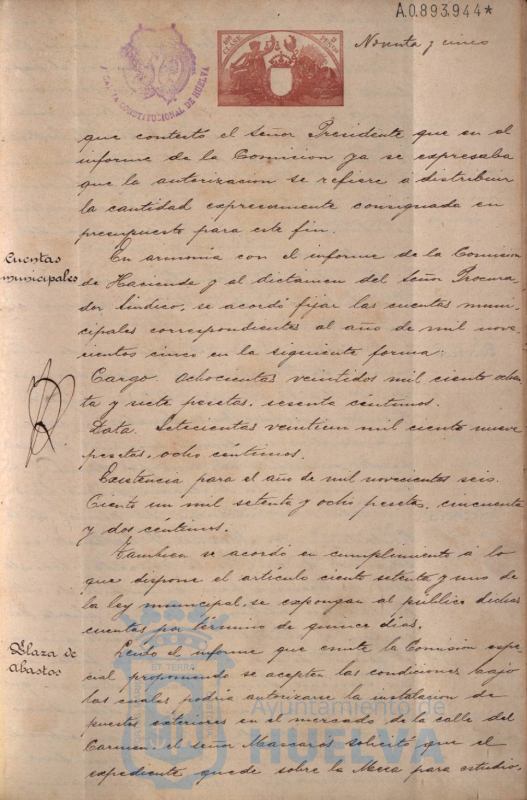 A.0.893,944*
Noventa y cinco
ALCALDIA CONSTITUCIONAL DE HUELVA
que contestó el Señor Presidente que en el
informe de la Comision ya se expresaba
que la autorizacion se refiere á distribuir
la cantidad expresamente consignada en
presupuesto para este fin.
Cuentas
municipales
En armonia con el informe de la Comision
de Hacienda y el dictamen del Señor Procura
dor Síndico, se acordó fijar las cuentas muni-
cipales correspondientes al año de mil nove
cientos cinco en la siguiente forma:
Cargo. Ochocientas veintidos mil ciento ochen
ta y siete pesetas, sesenta céntimos.
Data. Setecientas veintiun mil ciento nueve
pesetas, ocho céntimos.
Existencia para el año de mil novecientos seis.
Ciento un mil setenta y ocho peseta, cincuenta
y dos céntimos.
Tambien se acordó en cumplimiento á lo
que dispone el artículo ciento setenta y uno de
la ley municipal, se expongan al público dichas
cuentas por término de quince dias.
Plaza de
abastos
Leido el informe que emite la Comision espe
cial proponiendo se acepten las condiciones bajo
las cuales podria autorizarse la instalacion de
puestos exteriores en el mercado de la calle del
Carmen, el Señor Mascarós solicitó que el
expediente quede sobre la Mesa para estudio.
ET TERRA
Ayuntamiento de
HUELVA